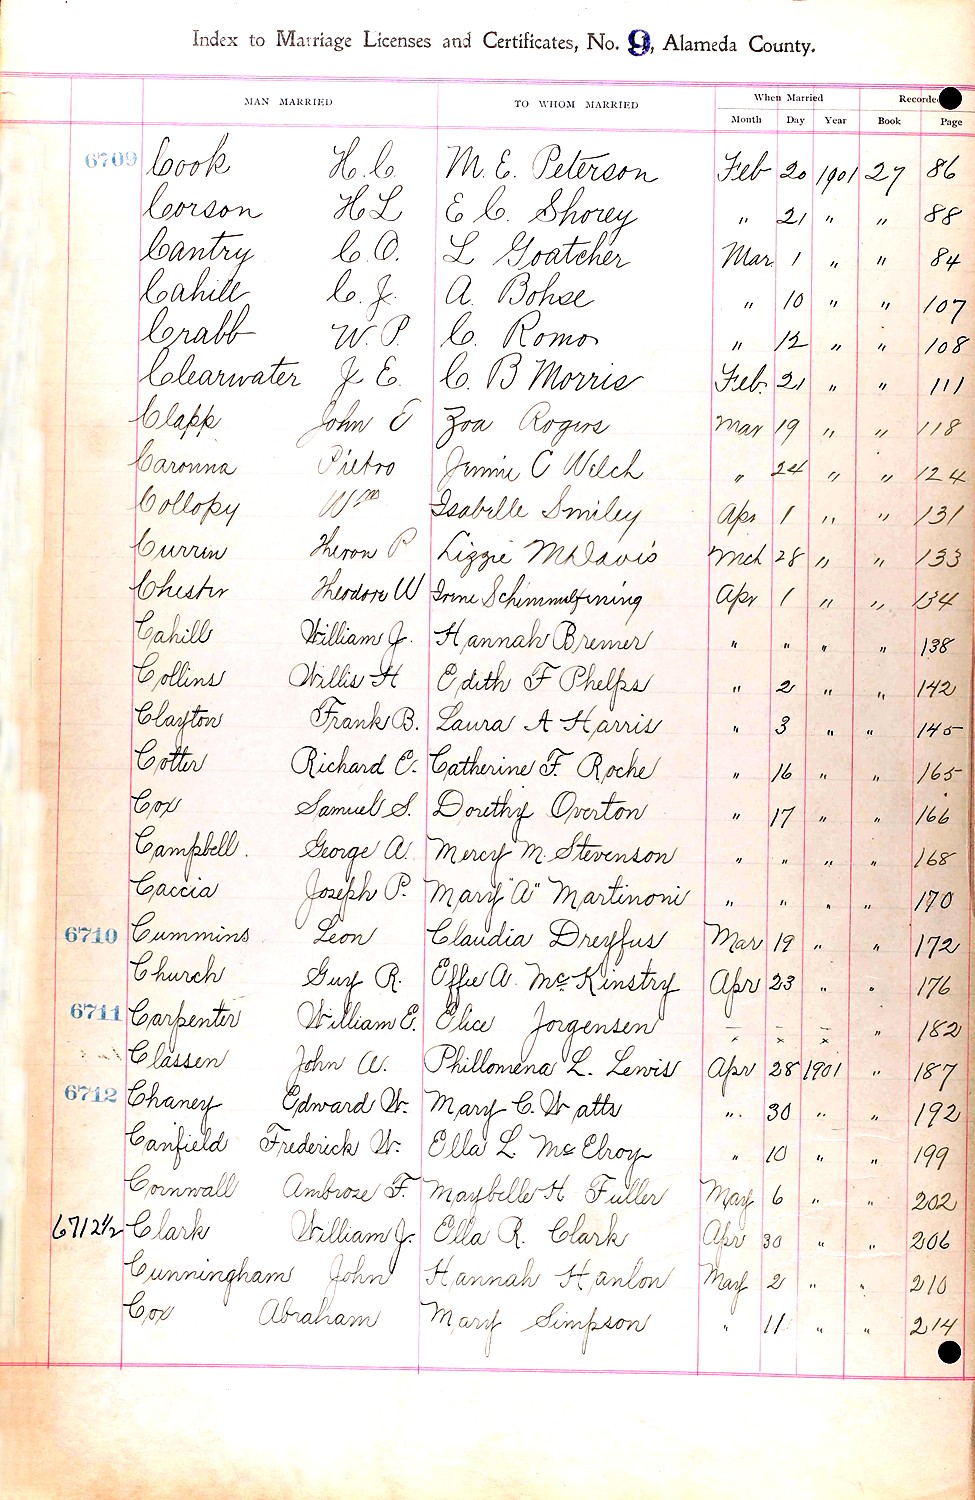 Index to Marriage Licenses and Certificates, No. 9, Alameda County.
MAN MARRIED TO WHOM MARRIED When Married Recorded
Month Day Year Book Page
6709 Cook H. C. M. E. Peterson Feb 20 1901 27 86
Corson H L E C. Shorey " 21 " " 88
Cantry C. O. L Goatcher Mar 1 " " 84
Cahill C. J. A. Bohse " 10 " " 107
Crabb W. P. C. Romo " 12 " " 108
Clearwater J E. C. B Morris Feb. 21 " " 111
Clapp John E Zoa Rogers Mar 19 " " 118
Caronna Pietro Jennie C Welch " 24 " " 124
Collopy Wm Isabelle Smiley Apr 1 " " 131
Currin Heron P Lizzie M Davis Mch 28 " " 133
Chester Theodore W Irene Apr 1 " " 134
Cahill William J. Hannah Bremer " " " " 138
Collins Willis H Edith F Phelps " 2 " " 142
Clayton Frank B. Laura A Harris " 3 " " 145
Cotter Richard E. Catherine F. Roche " 16 " " 165
Cox Samuel S. Dorethy Overton " 17 " " 166
Campbell. George A. Mercy M. Stevenson " " " " 168
Caccia Joseph P. Mary "A" Martinoni " " " " 170
6710 Cummins Leon Claudia Dreyfus Mar 19 " " 172
Church Guy R. Effie A. McKinstry Apr 23 " " 176
6711 Carpenter William E. Elice Jorgensen - - - " 182
Classen John A. Phillomena L. Lewis Apr 28 1901 " 187
6712 Chaney Edward W. Mary C. Watts " 30 " " 192
Canfield Frederick W. Ella L McElroy " 10 " " 199
Cornwall Ambroze F. Maybelle H Fuller May 6 " " 202
6712½ Clark William J. Ella R. Clark Apr 30 " " 206
Cunningham John Hannah Hanlon May 2 " " 210
Cox Abraham Mary Simpson " 11 " " 214